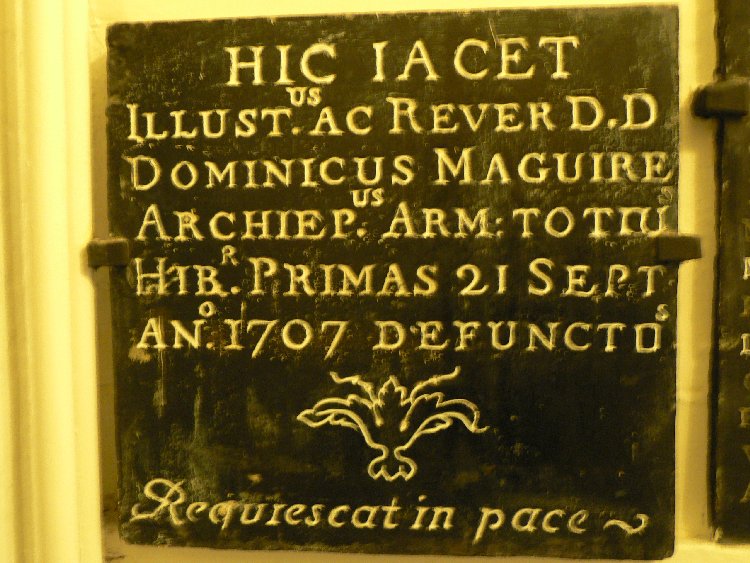 HIC IACET
ILLUST.US AC REVER D.D
DOMINICUS MAGUIRE
ARCHIEP.US ARM: TOTIUS
HIB.R PRIMAS 21 SEPT
AN.O 1707 DEFUNCTUS
Requiescat in pace